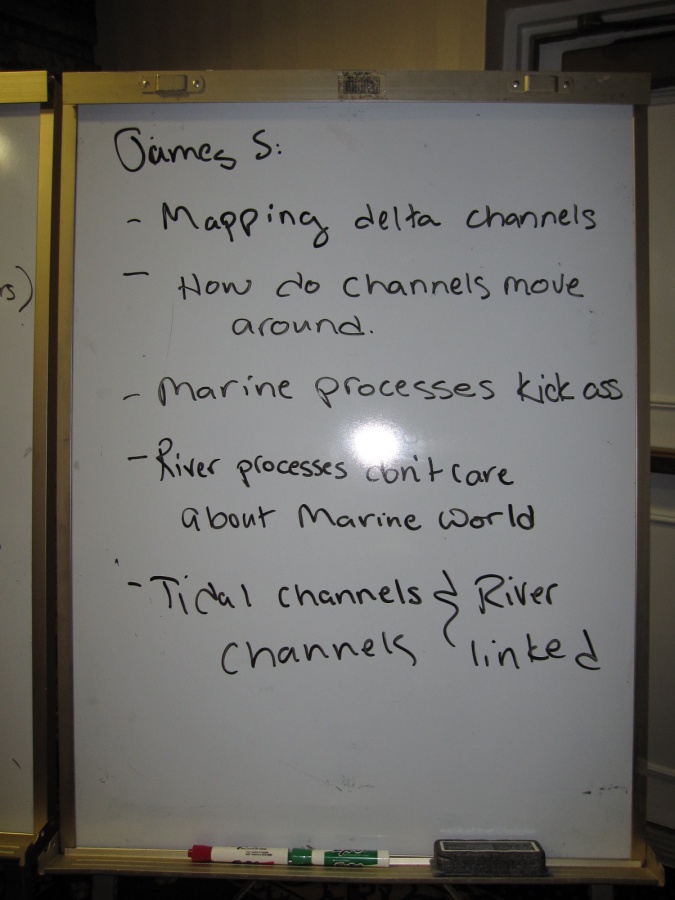 James S:
- Mapping delta channels
- How do channels move
around.
- Marine processes kick ass
- River processes don't care
about Marine world
- Tidal channels & River
channels linked
rs)